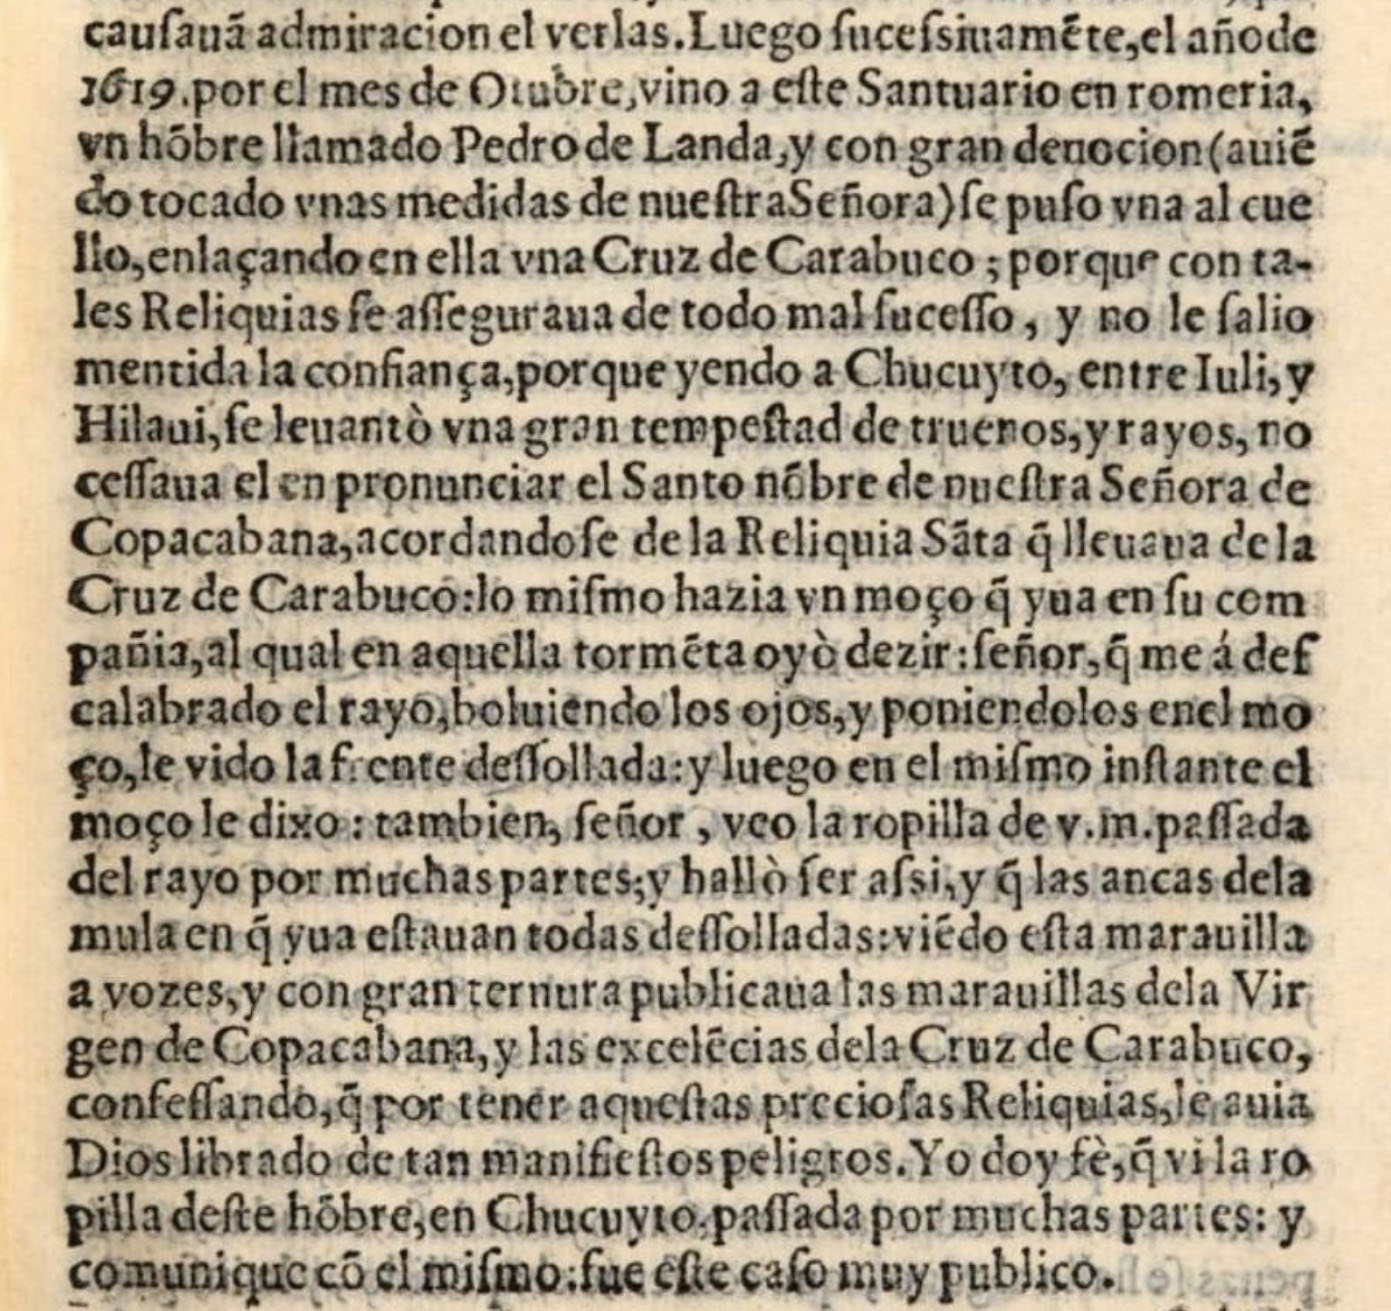 causauã admiracion el verlas. Luego sucessiuamẽte, el año de
1619. por el mes de Otubre, vino a este Santuario en romeria,
vn hõbre llamado Pedro de Landa, y con gran deuocion (auiẽ
do tocado vnas medidas de nuestra Señora) se puso vna al cue
llo, enlaçando en ella vna Cruz de Carabuco; porque con ta-
les Reliquias se asseguraua de todo mal sucesso, y no le salio
mentida la confiança, porque yendo a Chucuyto, entre Iuli, y
Hilaui, se leuantò vna gran tempestad de truenos, y rayos, no
cessaua el en pronunciar el Santo nõbre de nuestra Señora de
Copacabana, acordandose de la Reliquia Sãta q̃ lleuaua de la
Cruz de Carabuco: lo mismo hazia vn moço q̃ yua en su com
pañia, al qual en aquella tormẽta oyò dezir: señor, q̃ me á des
calabrado el rayo, boluiendo los ojos, y poniendolos en el mo
ço, le vido la frente dessollada: y luego en el mismo instante el
moço le dixo: tambien, señor, veo la ropilla de v.m. passada
del rayo por muchas partes; y hallò ser assi, y q̃ las ancas de la
mula en q̃ yua estauan todas dessolladas: viẽdo esta marauilla
a vozes, y con gran ternura publicaua las marauillas dela Vir
gen de Copacabana, y las excelẽcias dela Cruz de Carabuco,
confessando, q̃ por tener aquestas preciosas Reliquias, le auia
Dios librado de tan manifiestos peligros. Yo doy fè, q̃ vi la ro
pilla deste hõbre, en Chucuyto, passada por muchas partes: y
comunique cõ el mismo: fue este caso muy publico.